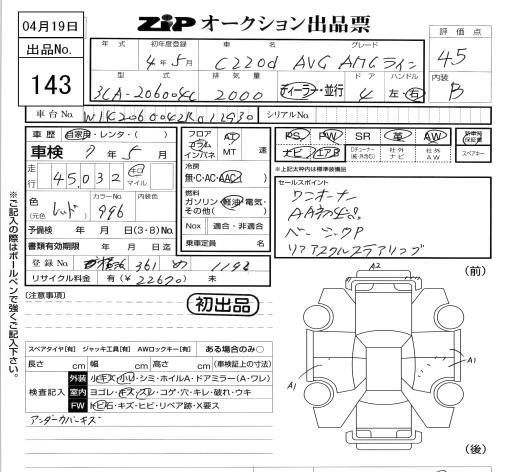 04月19日
ZiP オークション出品票
出品No.
143
年式 初年度登録 車名 グレード
4年5月 C220d AVG AMGライン
型式 排気量 ドア ハンドル
3CA-206004C 2000 ディーラー・並行 4 左・右
評価点
4.5
内装
B
車台No. シリアルNo.
車歴 自家用・レンタ・( )
車検 7年5月
走行 45,032 キロ マイル
色 カラーNo. 内装色
(元色) レッド 996
予備検 年 月 日(3・8)No.
書類有効期限 年 月 日迄
登録No. 361 め 1192
リサイクル料金 有(¥22670) 未
フロア AT
コラム
インパネ MT 速
冷房
無・C・AC・AAC
燃料
ガソリン・軽油・電気・
その他( )
Nox 適合・非適合
乗車定員 名
PS PW SR 革 AW
ナビ エアB Dチューナー 社外ナビ 社外AW
新車時保証書
スペアキー
*上記太枠内は標準装備品
セールスポイント
ワンオーナー
ベーシックP
リアアクスルステアリング
※ご記入の際はボールペンで強くご記入下さい。
(注意事項)
初出品
スペアタイヤ[有] ジャッキ工具[有] AWロックキー[有] ある場合のみ○
長さ cm 幅 cm 高さ cm (車検証上の寸法)
検査記入
外装 小キズ・小凹・シミ・ホイルA・ドアミラー(A・ワレ)
室内 ヨゴレ・キズ・スレ・コゲ・穴・キレ・破れ・ウキ
FW 飛石・キズ・ヒビ・リペア跡・X要ス
アンダーカバーキズ
(前)
A2
A1
A1
(後)